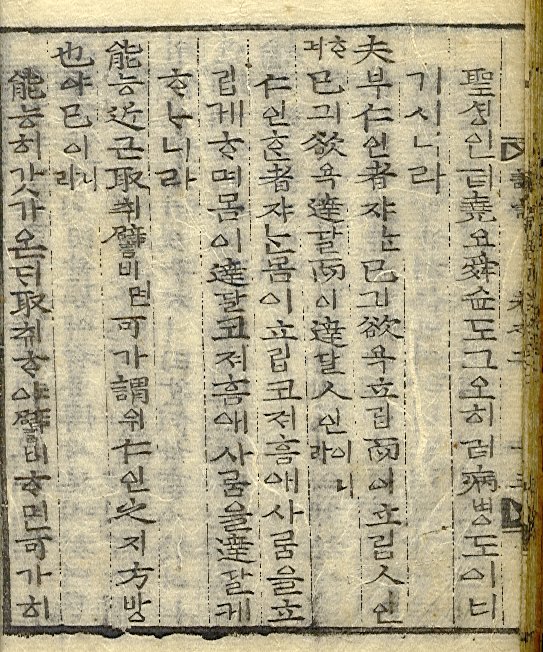 聖셩인뎌堯요舜슌도그오히려病병도이너
기시니라
夫부仁인者쟈ᄂᆞᆫ己긔欲욕立립而이立립人인
ᄒᆞ며己긔欲욕達달而이達달人인이니라
仁인ᄒᆞᆫ者쟈ᄂᆞᆫ몸이立립고져홈애사ᄅᆞᆷ을立
립게ᄒᆞ며몸이達달코져홈애사ᄅᆞᆷ을達달케
ᄒᆞᄂᆞ니라
能능近근取취譬비면可가謂위仁인之지方방
也야已이니라
能능히갓가온ᄃᆡ取취ᄒᆞ야譬비ᄒᆞ면可가히